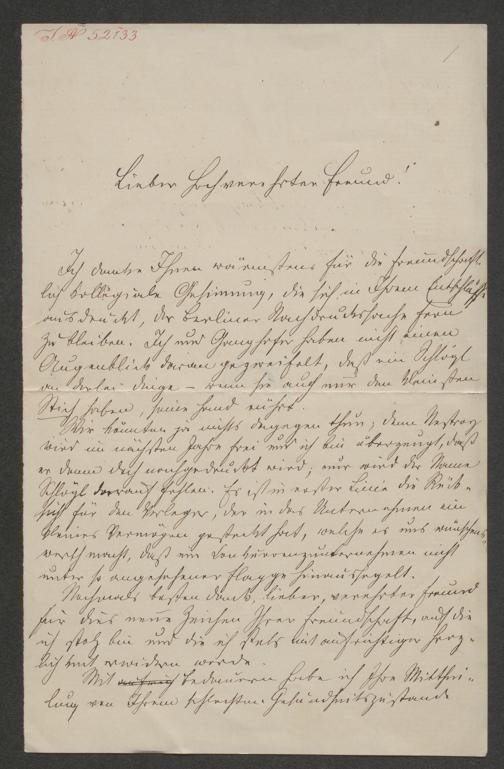 I N 52133
1
Lieber hochverehrter Freund!
Ich danke Ihnen wärmstens für die freundschaft-
lich kollegiale Gesinnung, die sich in Ihrem Entschlusse
ausdrückt, der Berliner Nachdrucksache fern
zu bleiben. Ich und Ganghofer haben nicht einen
Augenblick daran gezweifelt, daß ein Schlögl
an derlei Dinge – wenn sie auch nur den kleinsten
Stich haben, seine Hand rührt.
Wir könnten ja nichts dagegen thun; denn Nestroy
wird im nächsten Jahre frei und ich bin überzeugt, daß
er dann doch nachgedruckt wird; nur wird der Name
Schlögl darauf fehlen. Es ist in erster Linie die Rück-
sicht für den Verleger, der in das Unternehmen ein
kleines Vermögen gesteckt hat, welche es uns wünschens-
werth macht, daß ein Concurrenzunternehmen nicht
unter so angesehener Flagge hinaussegelt.
Nochmals besten Dank, lieber, verehrter Freund
für dies neue Zeichen Ihrer Freundschaft, auf die
ich stolz bin und die ich stets mit aufrichtiger Herz-
lichkeit erwidern werde.
Mit Bedauern habe ich Ihre Mitthei-
lung von Ihrem schlechten Gesundheitszustande